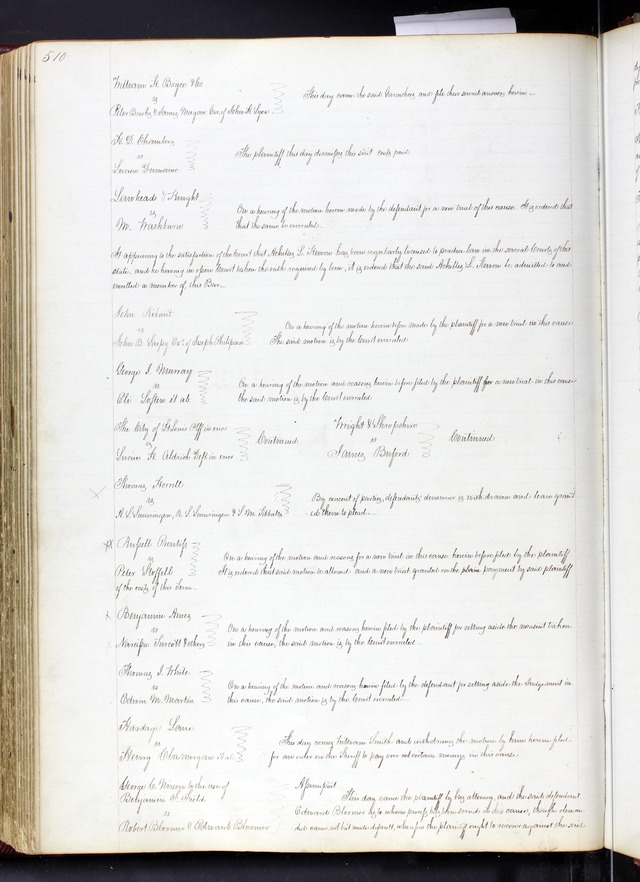 510
William H. Boyce & Co
vs
Peter Brooks & James Magan Exr of John H. Lyon
This day came the said Garnishees and file their several answers herein
H. D. Chambers
vs
Lucien Dumaine
The plaintiff this day dismisses this suit costs paid
& Knight
vs
M. Washburn
On a hearing of the motion herein made by the defendant for a new trial of this cause. It is ordered that
that the same be overruled
It appearing to the satisfaction of the Court that Achilles L. has been regularly licensed to practice law in the several Courts of this
state, and he having in open Court taken the oath required by law, it is ordered that the said Achilles L. be admitted to and
enrolled a member of this Bar
John
vs
John B. Sarpy Exr of Joseph Philipson
On a hearing of the motion heretofore made by the plaintiff for a new trial in this cause
The said motion is by the Court overruled
George I. Murray
vs
et al.
On a hearing of the motion and reasons herein before filed by the plaintiff for a new trial in this cause
the said motion is by the Court overruled
The City of St Louis Plff in error
vs
H. Aldrich Deft in error
Continued
Wright & Shropshire
vs
James Buford
Continued
Thomas
vs
A. S. Swearingen, & S. M.
By consent of parties, defendants demurrer is withdrawn and leave grant
ed them to plead
Russell Prentiss
vs
Peter Stoffell
On a hearing of the motion and reasons for a new trial in this cause herein before filed by the plaintiff
It is ordered that said motion be allowed and a new trial granted on the payment by said plaintiff
of the costs of this term
Benjamin Ames
vs
Narcisse & others
On a hearing of the motion and reasons herein filed by the plaintiff for setting aside the nonsuit taken
in this cause, the said motion is by the Court overruled
Thomas I. White
vs
Edwin M. Martin
On a hearing of the motion and reasons herein filed by the defendant for setting aside the Judgement in
this cause, the said motion is by the Court overruled
Hardage Lane
vs
Henry Chamorgan et al
This day comes William Smith and withdraws the motion by him herein filed
for an order on the Sheriff to pay over certain moneys in this cause
George C. by the use of
Benjamin F. Field
vs
Robert Bloomer & Edward Bloomer
Assumpsit
This day came the plaintiff by his attorney, and the said defendant
Edward Bloomer is to whom process has been served in this cause, though deman
ded came not but made default, wherefore the plaintiff ought to recover against the said